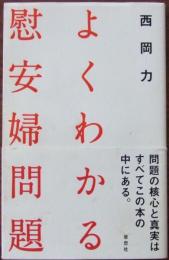 西岡力
よくわかる
慰安婦問題
問題の核心と真実は
すべてこの本の
中にある。
草思社